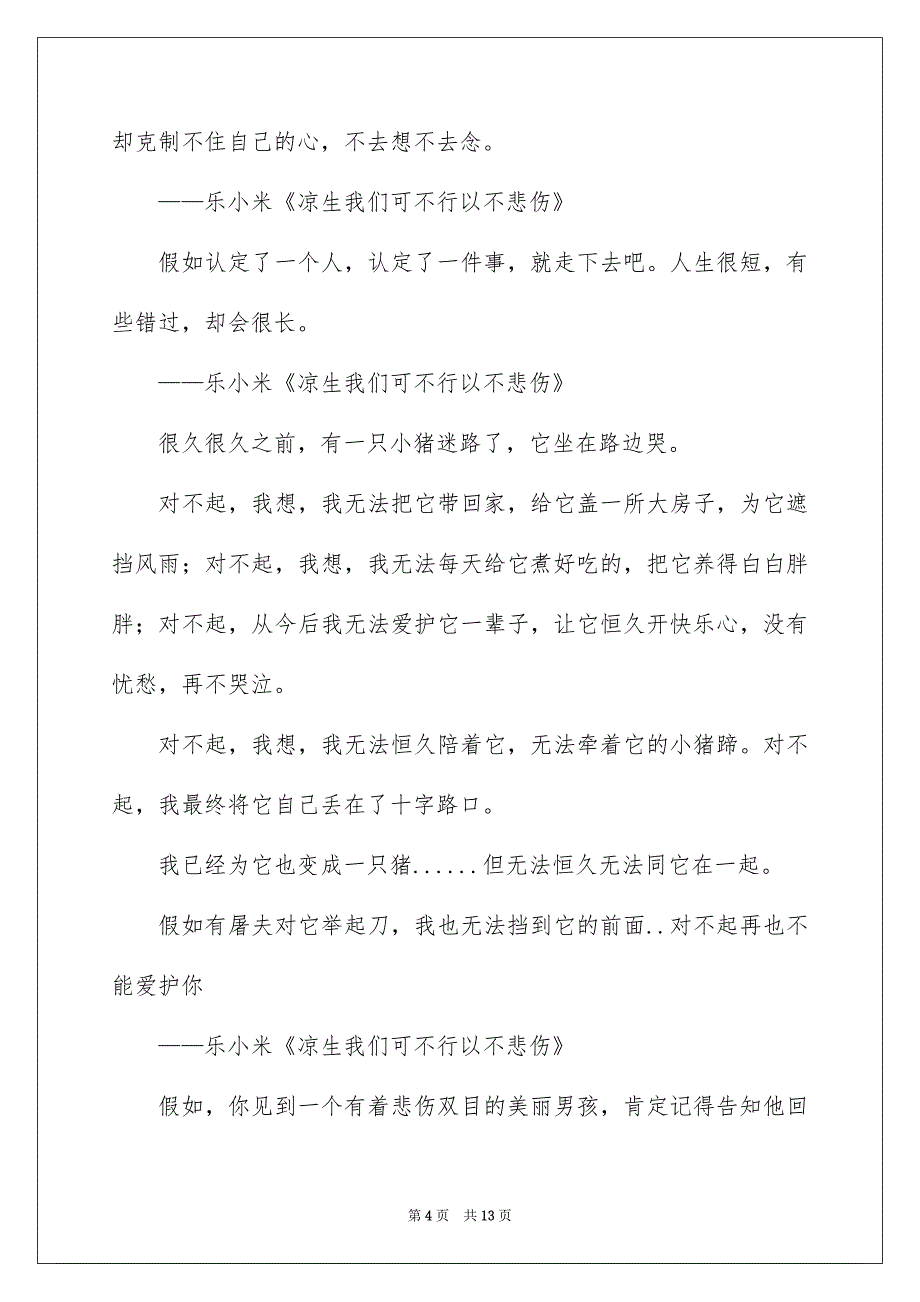 却克制不住自己的心，不去想不去念。
——乐小米《凉生我们可不行以不悲伤》
假如认定了一个人，认定了一件事，就走下去吧。人生很短，有
些错过，却会很长。
——乐小米《凉生我们可不行以不悲伤》
很久很久之前，有一只小猪迷路了，它坐在路边哭。
对不起，我想，我无法把它带回家，给它盖一所大房子，为它遮
挡风雨；对不起，我想，我无法每天给它煮好吃的，把它养得白白胖
胖；对不起，从今后我无法爱护它一辈子，让它恒久开快乐心，没有
忧愁，再不哭泣。
对不起，我想，我无法恒久陪着它，无法牵着它的小猪蹄。对不
起，我最终将它自己丢在了十字路口。
我已经为它也变成一只猪......但无法恒久无法同它在一起。
假如有屠夫对它举起刀，我也无法挡到它的前面..对不起再也不
能爱护你
——乐小米《凉生我们可不行以不悲伤》
假如，你见到一个有着悲伤双目的美丽男孩，肯定记得告知他回
第 4 页 共 13 页